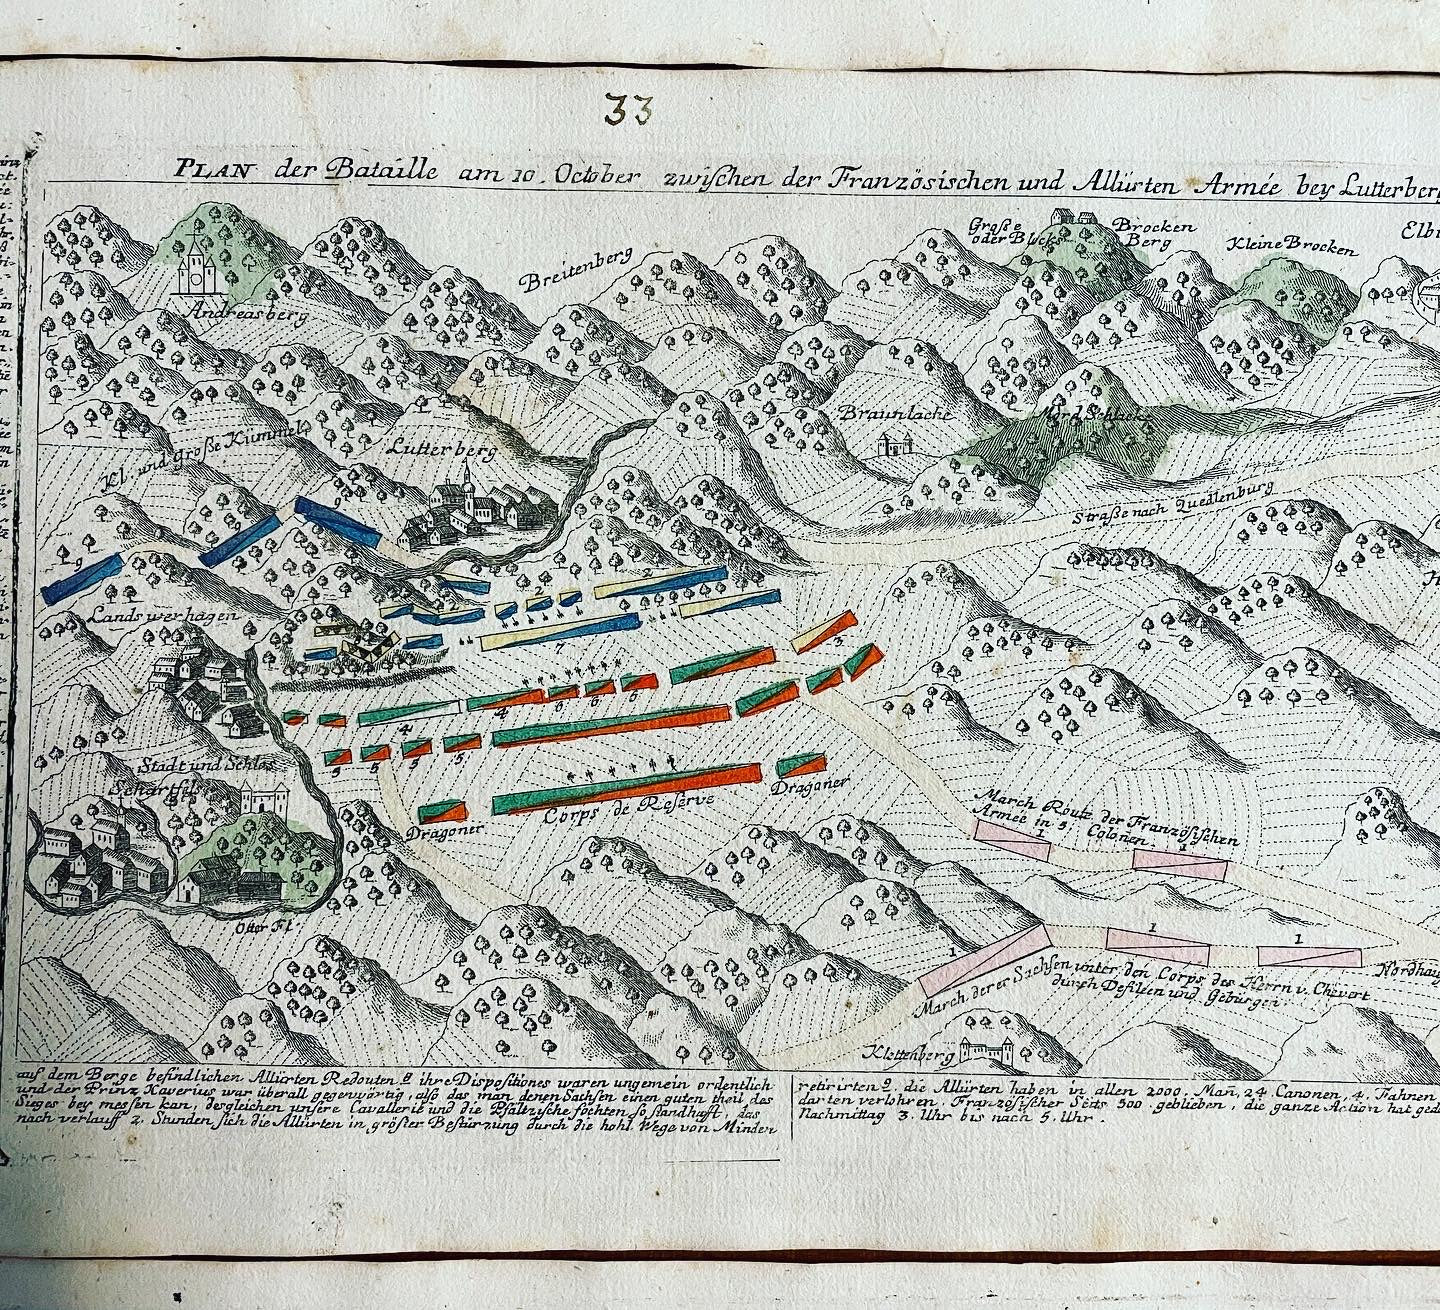 33
PLAN der Bataille am 10. October zwischen der Französischen und Allürten Armée bey Lutterberg
Große oder Blocks
Brocken Berg
Kleine Brocken
Breitenberg
Andreasberg
Braunlache
Lutterberg
Kl. und Große Kümmel
Straße nach Quedlenburg
9
9
9
Landswerhagen
2
2
2
7
3
4
6
6
6
4
5
5
5
5
Stadt und Schlos
Schartfels
Dragoner
Corps de Reserve
Dragoner
Otter Fl.
March Route der Französischen
Armée in 5. Colonen.
1
1
1
1
1
March derer Sachsen unter den Corps des Herrn v. Chevert
durch Defileen und Gebürgen.
Klettenberg
auf dem Berge befindlichen Allürten Redouten 8 ihre Dispositiones waren ungemein ordentlich
und der Prinz Xaverius war überall gegenwärtig, also das man denen Sachsen einen guten theil des
Sieges bey messen kan, desgleichen unsere Cavallerie und die Pfältzische fochten so standhafft, das
nach verlauff 2. Stunden sich die Allürten in gröster Bestürzung durch die hohl Wege von Minden
retirirten 9. die Allürten haben in allen 2000. Man, 24 Canonen, 4. Fahnen
darten verlohren. Französischer Seits 500 geblieben, die ganze Action hat
Nachmittag 3. Uhr bis nach 5. Uhr.